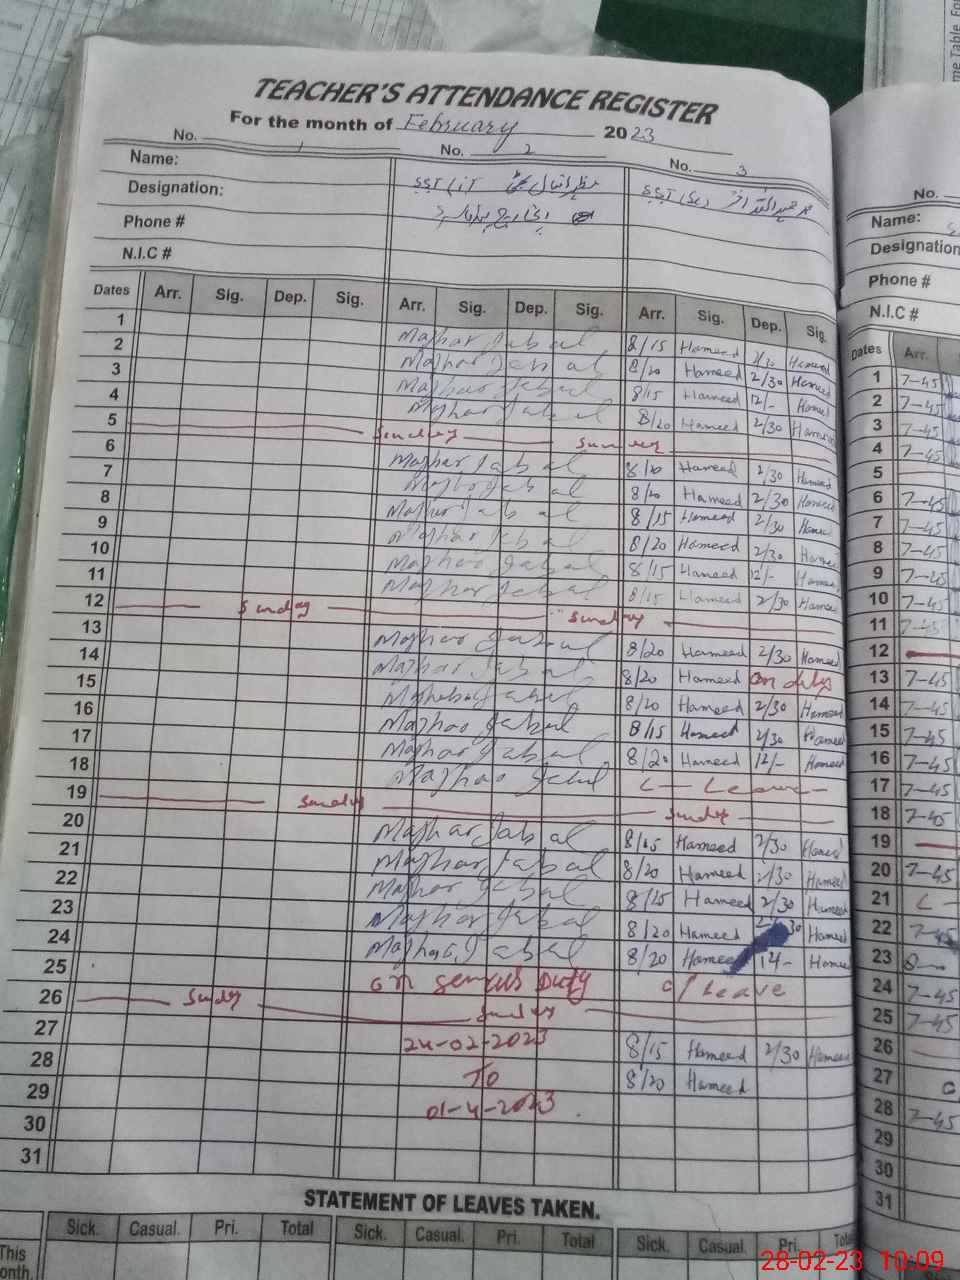 TEACHER'S ATTENDANCE REGISTER
For the month of February 2023
No. 1 No. 2 No. 3
Name: SST (IT SST (Sc)
Designation:
Phone #
N.I.C #
Dates Arr. Sig. Dep. Sig. Arr. Sig. Dep. Sig. Arr. Sig. Dep. Sig.
1 Mazhar Iqbal 8/15 Hameed 2/30 Hameed
2 Mazhar Iqbal 8/20 Hameed 2/30 Hameed
3 Mazhar Iqbal 8/15 Hameed 12/- Hameed
4 Mazhar Iqbal 8/20 Hameed 2/30 Hameed
5 Sunday Sunday
6 Mazhar Iqbal 8/20 Hameed 2/30 Hameed
7 Mazhar Iqbal 8/20 Hameed 2/30 Hameed
8 Mazhar Iqbal 8/15 Hameed 2/30 Hameed
9 Mazhar Iqbal 8/20 Hameed 2/30 Hameed
10 Mazhar Iqbal 8/15 Hameed 12/- Hameed
11 Mazhar Iqbal 8/15 Hameed 2/30 Hameed
12 Sunday Sunday
13 Mazhar Iqbal 8/20 Hameed 2/30 Hameed
14 Mazhar Iqbal 8/20 Hameed on duty
15 Mazhar Iqbal 8/20 Hameed 2/30 Hameed
16 Mazhar Iqbal 8/15 Hameed 2/30 Hameed
17 Mazhar Iqbal 8/20 Hameed 12/- Hameed
18 Mazhar Iqbal L - Leave -
19 Sunday Sunday
20 Mazhar Iqbal 8/15 Hameed 2/30 Hameed
21 Mazhar Iqbal 8/20 Hameed 2/30 Hameed
22 Mazhar Iqbal 8/15 Hameed 2/30 Hameed
23 Mazhar Iqbal 8/20 Hameed 30 Hameed
24 Mazhar Iqbal 8/20 Hameed Hameed
25 on Duty c/Leave
26 Sunday Sunday
27 24-02-2023 8/15 Hameed 2/30 Hameed
28 To 8/20 Hameed
29 01-4-2023
30
31
STATEMENT OF LEAVES TAKEN.
Sick. Casual. Pri. Total Sick. Casual. Pri. Total Sick. Casual. Pri. Total
This
onth.
No.
Name:
Designation
Phone #
N.I.C #
Dates Arr.
1 7-45
2 7-45
3 7-45
4 7-45
5
6 7-45
7 7-45
8 7-45
9 7-45
10 7-45
11 7-45
12
13 7-45
14 7-45
15 7-45
16 7-45
17 7-45
18 7-45
19
20 7-45
21 L -
22 7-45
23
24 7-45
25 7-45
26
27
28 7-45
29
30
31
me Table. For
28-02-23 10:09